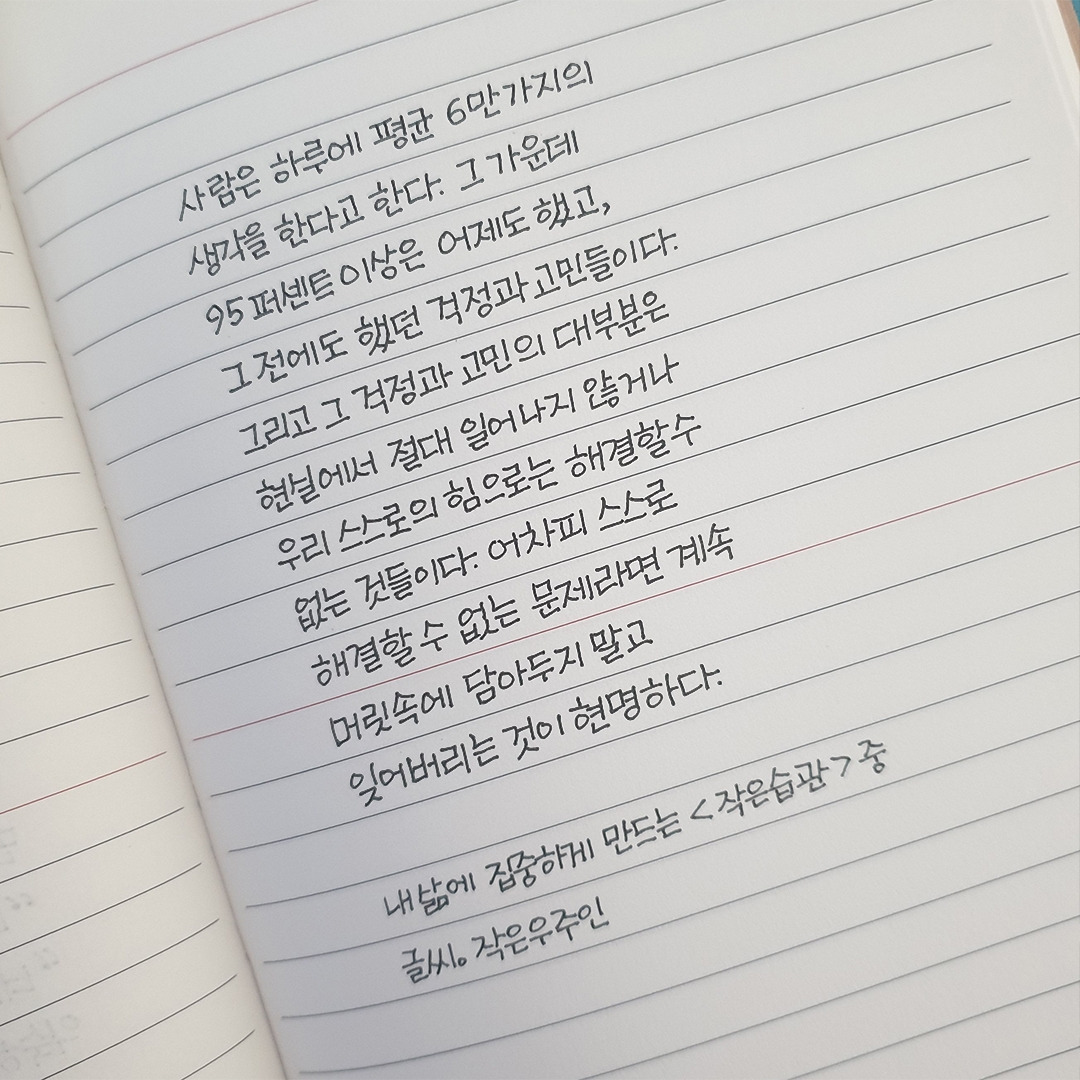 사람은 하루에 평균 6만가지의
생각을 한다고 한다. 그 가운데
95퍼센트 이상은 어제도 했고,
그 전에도 했던 걱정과 고민들이다.
그리고 그 걱정과 고민의 대부분은
현실에서 절대 일어나지 않거나
우리 스스로의 힘으로는 해결할 수
없는 것들이다. 어차피 스스로
해결할 수 없는 문제라면 계속
머릿속에 담아두지 말고
잊어버리는 것이 현명하다.
내 삶에 집중하게 만드는 <작은습관> 중
글씨。작은우주인